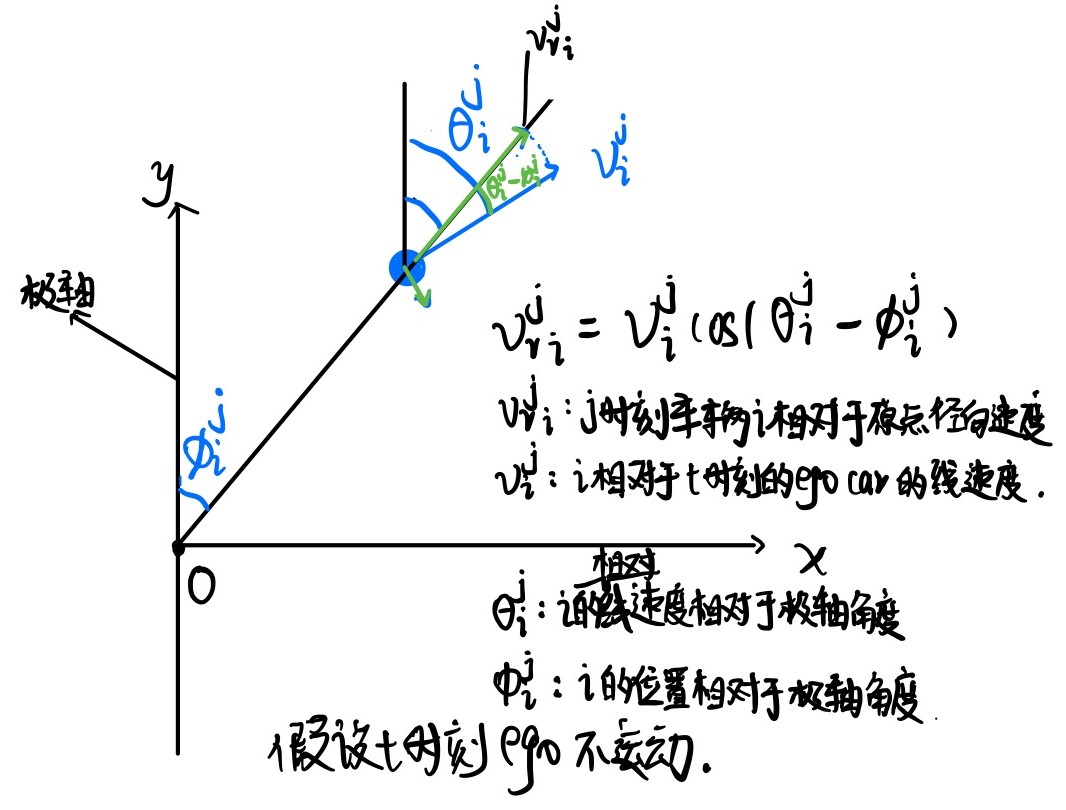 v_{r_i}^j
θ_i^j
v_i^j
θ_i^j-ϕ_i^j
y
极轴
v_{r_i}^j = v_i^j cos(θ_i^j - ϕ_i^j)
ϕ_i^j
v_{r_i}^j: j时刻车辆i相对于原点径向速度
v_i^j: i相对于t时刻的ego car的线速度.
x
O
相对
θ_i^j: i的线速度相对于极轴角度
ϕ_i^j: i的位置相对于极轴角度.
假设t时刻ego不运动.